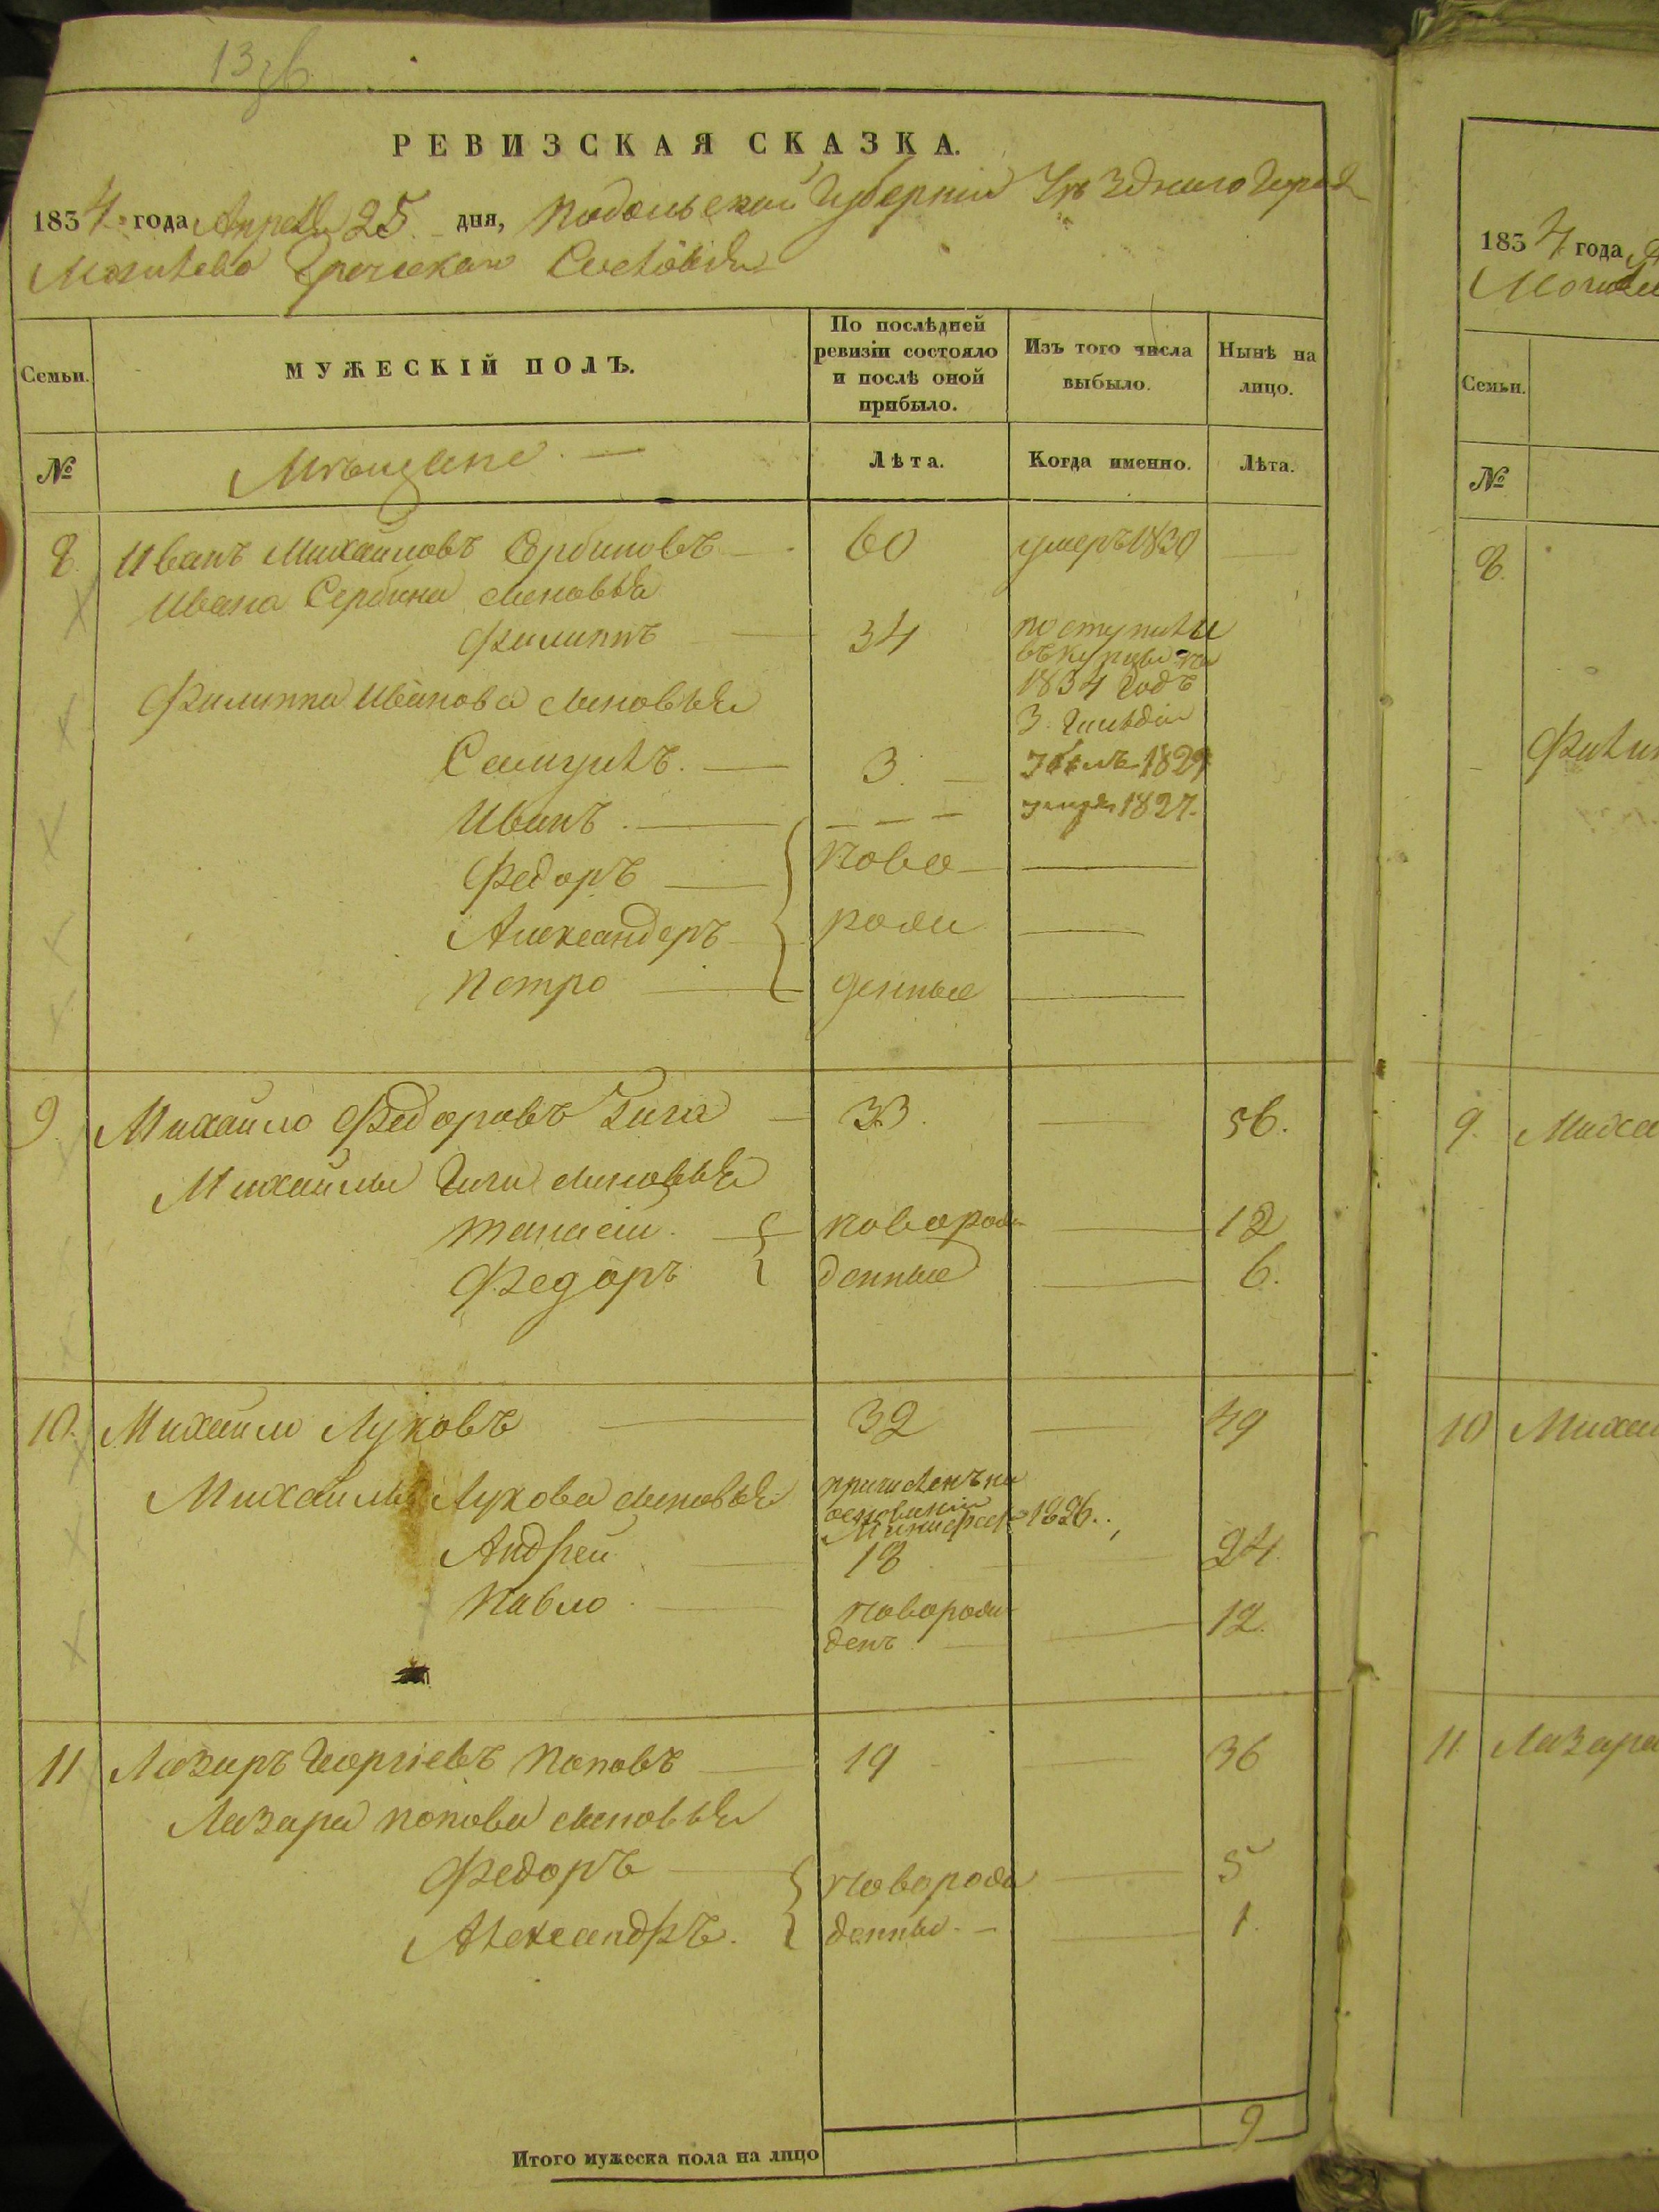 13 зв
РЕВИЗСКАЯ СКАЗКА.
1834 года Апреля 25 дня, Подольской Губернии Уѣздного Города
Могилева Греческаго Сословія
Семьи.
МУЖЕСКІЙ ПОЛЪ.
По послѣдней ревизіи состояло и послѣ оной прибыло.
Изъ того числа выбыло.
Нынѣ на лицо.
№
Мѣщане
Лѣта.
Когда именно.
Лѣта.
8. Иванъ Михайловъ Сербиновъ 60 умеръ 1830
Ивана Сербина сыновья
Филиппъ 34 поступили
въ купцы на
1834 годъ
3. Гильдіи
Филиппа Иванова сыновья
Самуилъ. 3. 1829
Иванъ. 1827.
Федоръ ново
Александеръ рож
Петро денные
9. Михайло Федоровъ Гига 33. 56.
Михайлы Гиги сыновья
Танасій. новорож 12
Федоръ денные 6.
10. Михайло Луковъ 32 49
Михайлы Лукова сыновья причисленъ на
основаніи
1826.
Андрей 18 24.
Павло новорож 12.
денъ
11 Лазаръ Георгіевъ Поповъ 19 36
Лазара Попова сыновья
Федоръ новорож 5
Александръ. денны 1.
Итого мужеска пола на лицо 9
1834 года
Семьи.
№
8.
9. Миха
10 Михай
11. Лазара